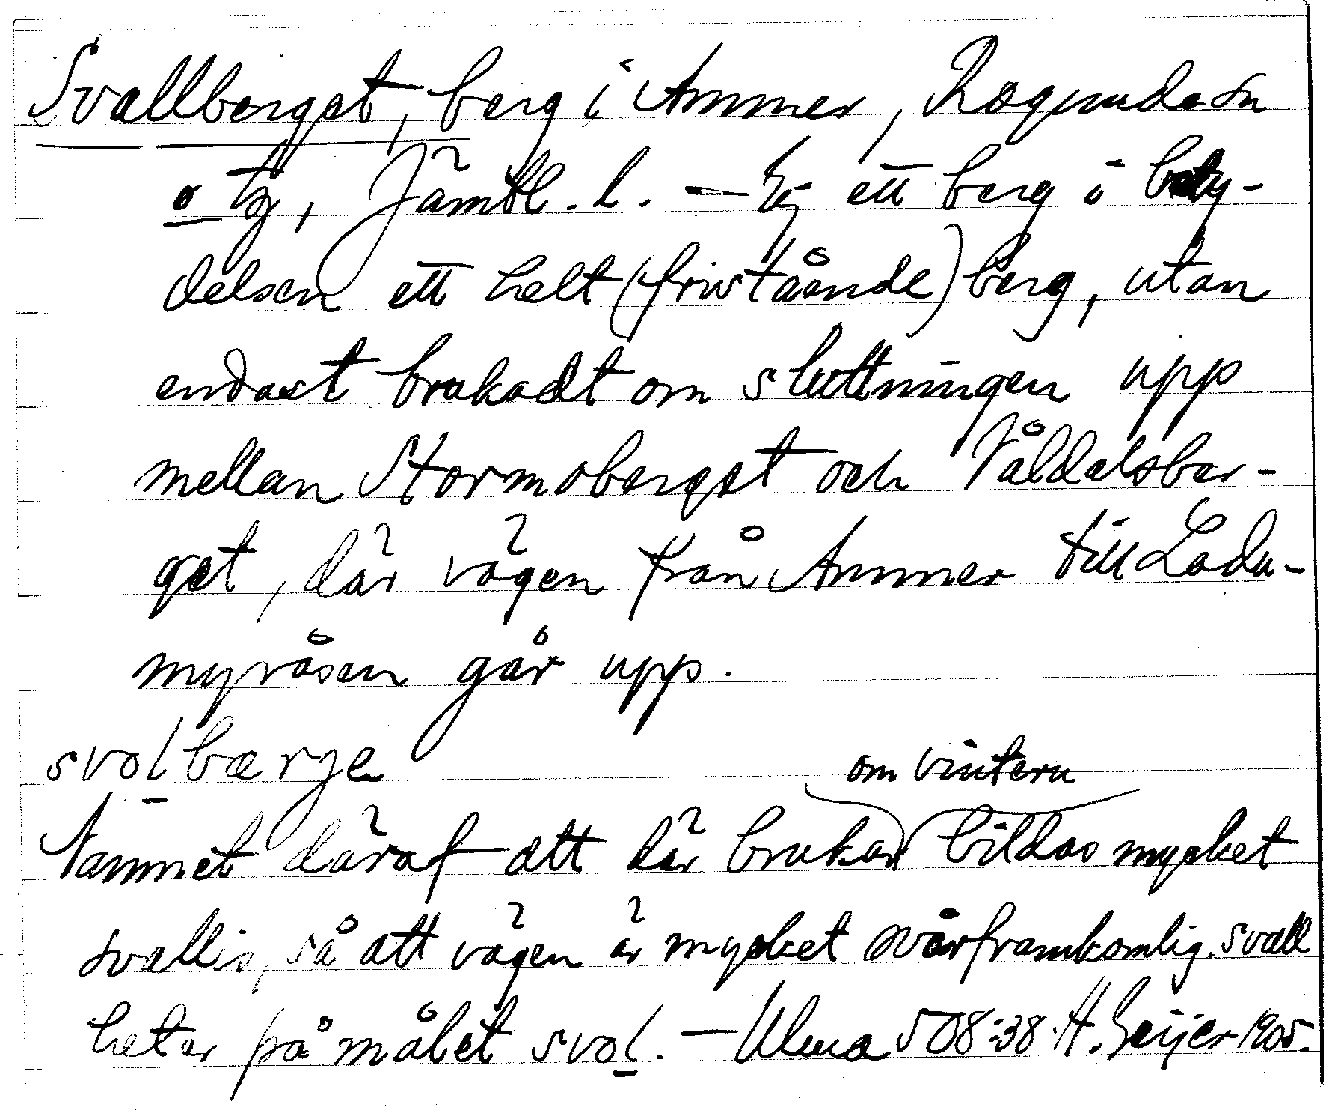 Svallberget, berg i Ammer, Ragunda sn
o tg, Jämtl. l. — Ej ett berg i bety-
delsen ett helt (fristående) berg, utan
endast brukadt om sluttningen upp
mellan Stormoberget och Våldalsber-
get, där vägen från Ammer till Ladu-
myråsen går upp.
svolbærje
om vintern
Namnet däraf att där brukar bildas mycket
svallis, så att vägen är mycket svårframkomlig. svall
heter på målet svol. — Ulma 508:38 H. Geijer 1905.